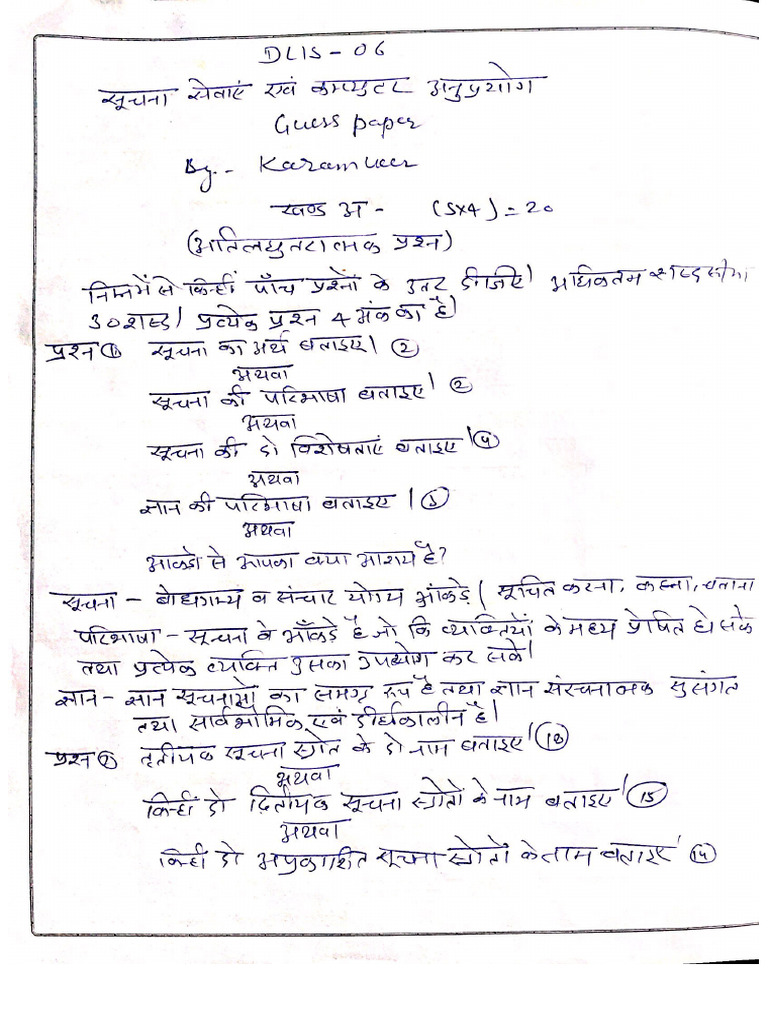 DLIS - 06
सूचना सेवाएं एवं कम्प्युटर अनुप्रयोग
Guess paper
By.- Karamveer
खण्ड अ - (5x4) = 20
(अतिलघुतरात्मक प्रश्न)
निम्न में से किन्हीं पाँच प्रश्नों के उतर दीजिए। अधिकतम शब्द सीमा
30 शब्द। प्रत्येक प्रश्न 4 अंक का है।
प्रश्न ① सूचना का अर्थ बताइए। ②
अथवा
सूचना की परिभाषा बताइए। ②
अथवा
सूचना की दो विशेषताएं बताइए। ④
अथवा
ज्ञान की परिभाषा बताइए। ⑤
अथवा
आकडो से आपका क्या आशय है?
सूचना - बोधगम्य व संचार योग्य आँकड़े। सूचित करना, कहना, बताना
परिभाषा - सूचना वे आँकड़े है जो कि व्यक्तियों के मध्य प्रेषित हो सके
तथा प्रत्येक व्यक्ति उसका उपयोग कर सके।
ज्ञान - ज्ञान सूचनाओं का समग्र रूप है तथा ज्ञान संरचनात्मक सुसंगत
तथा सार्वभौमिक एवं दीर्घकालीन है।
प्रश्न ② तृतीयक सूचना स्रोत के दो नाम बताइए। ⑱
अथवा
किन्हीं दो द्वितीयक सूचना स्रोतो के नाम बताइए। ⑮
अथवा
किन्हीं दो अप्रकाशित सूचना स्रोतों के नाम बताइए ⑭